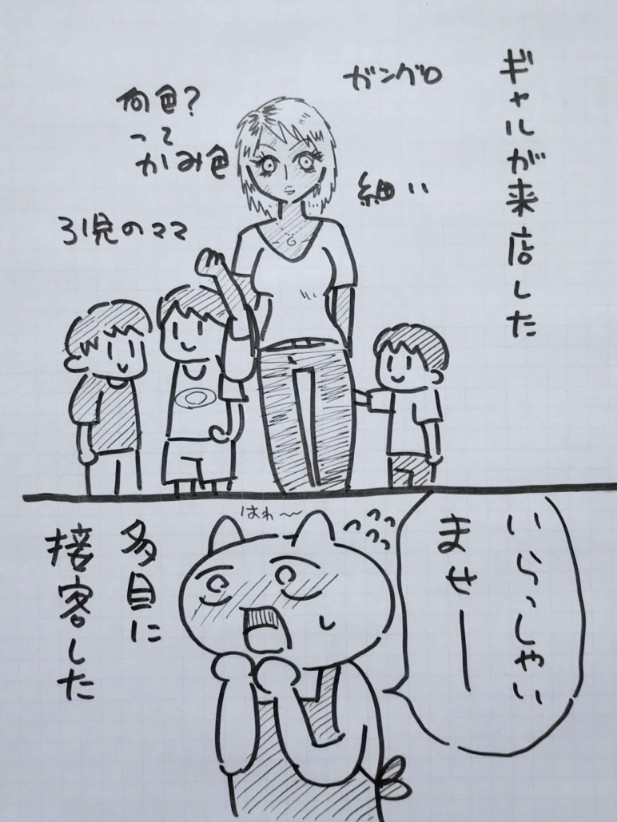 ギャルが来店した
ガングロ
細い
何色?
って
かみ色
3児のママ
いらっしゃい
ませー
はわ〜
多目に
接客した